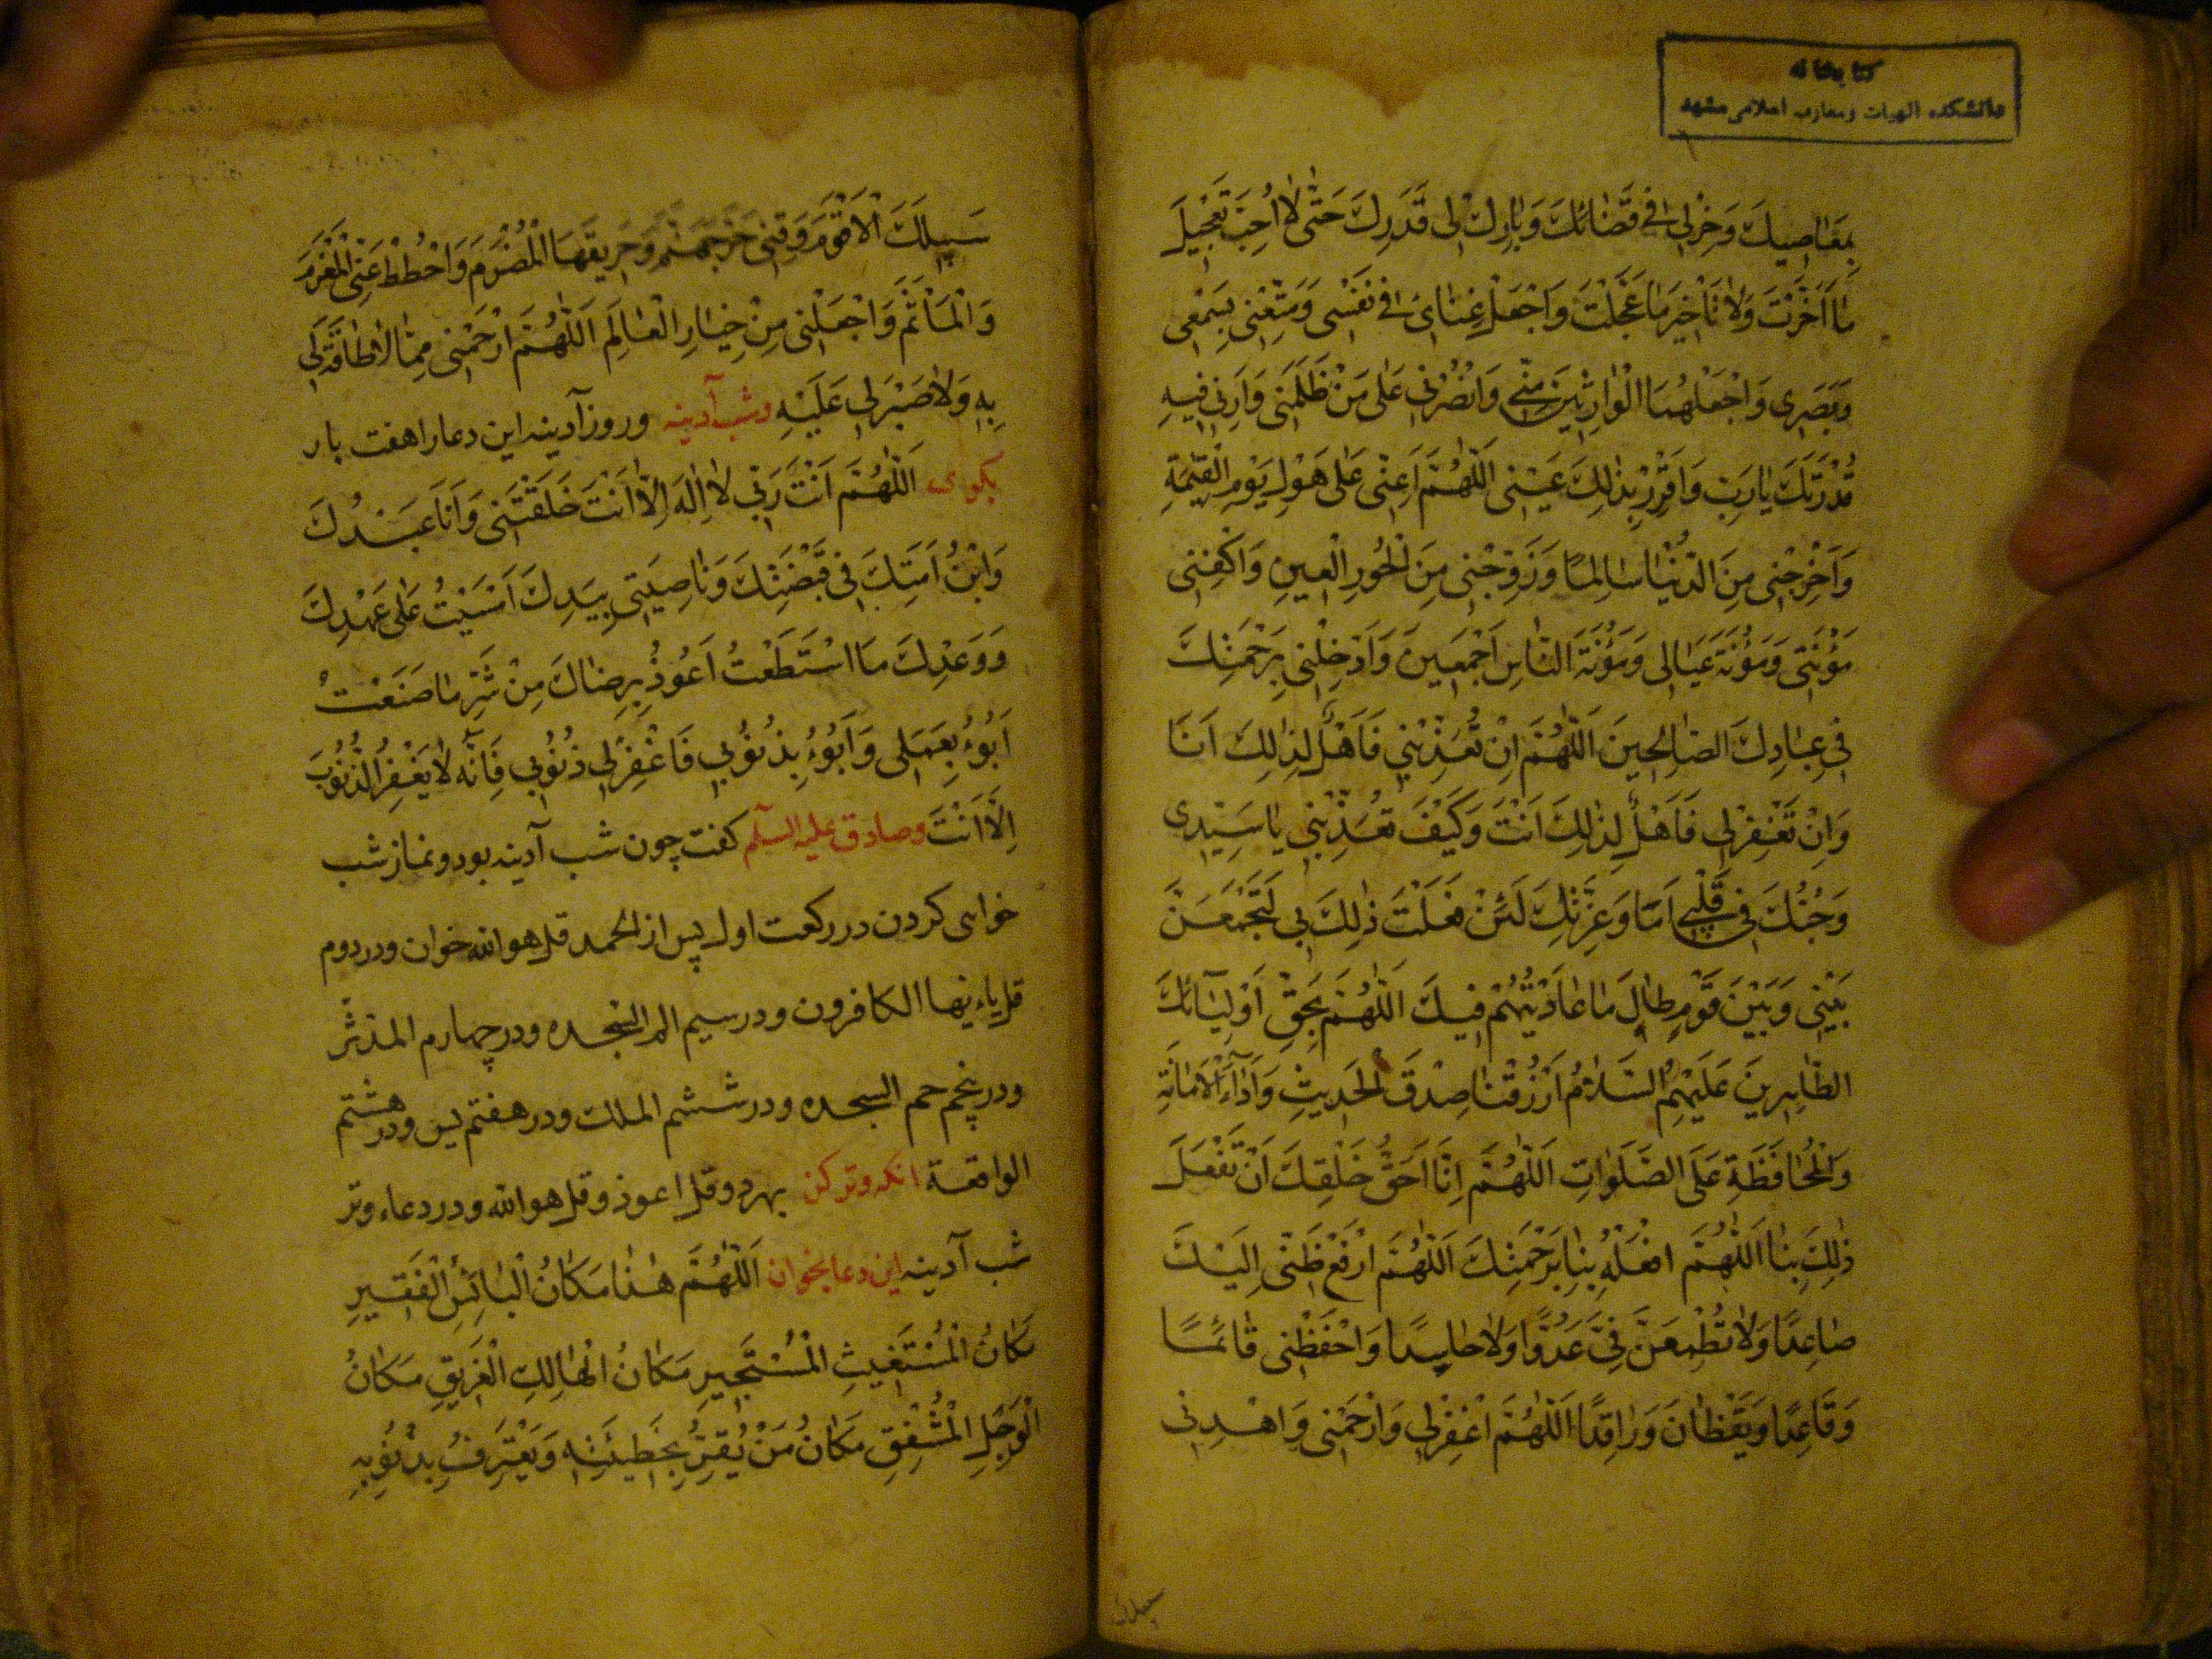 كتابخانه
دانشكده الهيات ومعارف اسلامى مشهد
بِمَعَاصِيكَ وَخِرْلِى فِى قَضَائِكَ وَبَارِكْ لِى قَدَرِكَ حَتّٰى لَا اُحِبَّ تَعْجِيلَ
مَا اَخَّرْتَ وَلَا تَأْخِيرَ مَا عَجَّلْتَ وَاجْعَلْ غِنَاىَ فِى نَفْسِى وَمَتِّعْنِى بِسَمْعِى
وَبَصَرِى وَاجْعَلْهُمَا الْوَارِثَيْنِ مِنِّى وَانْصُرْنِى عَلٰى مَنْ ظَلَمَنِى وَاَرِنِى فِيهِ
قُدْرَتَكَ يَا رَبِّ وَاَقْرِرْ بِذٰلِكَ عَيْنِى اَللّٰهُمَّ اَعِنِّى عَلٰى هَوْلِ يَوْمِ الْقِيٰمَةِ
وَاَخْرِجْنِى مِنَ الدُّنْيَا سَالِمًا وَزَوِّجْنِى مِنَ الْحُورِ الْعِينِ وَاكْفِنِى
مَؤُنَتِى وَمَؤُنَةَ عِيَالِى وَمَؤُنَةَ النَّاسِ اَجْمَعِينَ وَاَدْخِلْنِى بِرَحْمَتِكَ
فِى عِبَادِكَ الصَّالِحِينَ اَللّٰهُمَّ اِنْ تُعَذِّبْنِى فَاَهْلٌ لِذٰلِكَ اَنَا
وَاِنْ تَغْفِرْلِى فَاَهْلٌ لِذٰلِكَ اَنْتَ وَكَيْفَ تُعَذِّبْنِى يَا سَيِّدِى
وَحُبُّكَ فِى قَلْبِى اَمَا وَعِزَّتِكَ لَئِنْ فَعَلْتَ ذٰلِكَ بِى لَتَجْمَعَنَّ
بَيْنِى وَبَيْنَ قَوْمٍ طَالَ مَا عَادَيْتُهُمْ فِيكَ اَللّٰهُمَّ بِحَقِّ اَوْلِيَآئِكَ
الطَّاهِرِينَ عَلَيْهِمُ السَّلَامُ ارْزُقْنَا صِدْقَ الْحَدِيثِ وَاَدَآءَ الْاَمَانَةِ
وَالْمُحَافَظَةِ عَلَى الصَّلَوَاتِ اَللّٰهُمَّ اِنَّا اَحَقُّ خَلْقِكَ اَنْ تَفْعَلَ
ذٰلِكَ بِنَا اَللّٰهُمَّ افْعَلْهُ بِنَا بِرَحْمَتِكَ اَللّٰهُمَّ ارْفَعْ ظَنِّى اِلَيْكَ
صَاعِدًا وَلَا تُطْمِعَنَّ فِىَّ عَدُوًّا وَلَا حَاسِدًا وَاحْفَظْنِى قَائِمًا
وَقَاعِدًا وَيَقْظَانَ وَرَاقِدًا اَللّٰهُمَّ اغْفِرْلِى وَارْحَمْنِى وَاهْدِنِى
سبيلك
سَبِيلَكَ الْاَقْوَمَ وَقِنِى حَرَّ جَهَنَّمَ وَحَرِيقَهَا الْمُضْرَمَ وَاحْطُطْ عَنِّى الْمَغْرَمَ
وَالْمَأْثَمَ وَاجْعَلْنِى مِنْ خِيَارِ الْعَالَمِ اَللّٰهُمَّ ارْحَمْنِى مِمَّا لَا طَاقَةَ لِى
بِهِ وَلَا صَبْرَ لِى عَلَيْهِ وشب آدينه وروز آدينه اين دعا را هفت بار
بكوى اَللّٰهُمَّ اَنْتَ رَبِّى لَا اِلٰهَ اِلَّا اَنْتَ خَلَقْتَنِى وَاَنَا عَبْدُكَ
وَابْنُ اَمَتِكَ فِى قَبْضَتِكَ وَنَاصِيَتِى بِيَدِكَ اَمْسَيْتُ عَلٰى عَهْدِكَ
وَوَعْدِكَ مَا اسْتَطَعْتُ اَعُوذُ بِرِضَاكَ مِنْ شَرِّ مَا صَنَعْتُ
اَبُوءُ بِعَمَلِى وَاَبُوءُ بِذُنُوبِى فَاغْفِرْلِى ذُنُوبِى فَاِنَّهُ لَا يَغْفِرُ الذُّنُوبَ
اِلَّا اَنْتَ وصادق عليه السلم كفت چون شب آدينه بود ونماز شب
خواهى كردن در ركعت اول پس از الحمد قل هو الله خوان ودر دوم
قل يا ايها الكافرون ودر سيم الم السجده ودر چهارم المدثر
ودر پنجم حم السجده ودر ششم الملك ودر هفتم يس ودر هشتم
الواقعة انكه وتر كن بهر دو قل اعوذ وقل هو الله ودر دعاء وتر
شب آدينه اين دعا بخوان اَللّٰهُمَّ هٰذَا مَكَانُ الْبَائِسِ الْفَقِيرِ
مَكَانُ الْمُسْتَغِيثِ الْمُسْتَجِيرِ مَكَانُ الْهَالِكِ الْغَرِيقِ مَكَانُ
الْوَجِلِ الْمُشْفِقِ مَكَانُ مَنْ يُقِرُّ بِخَطِيئَتِهِ وَيَعْتَرِفُ بِذُنُوبِهِ